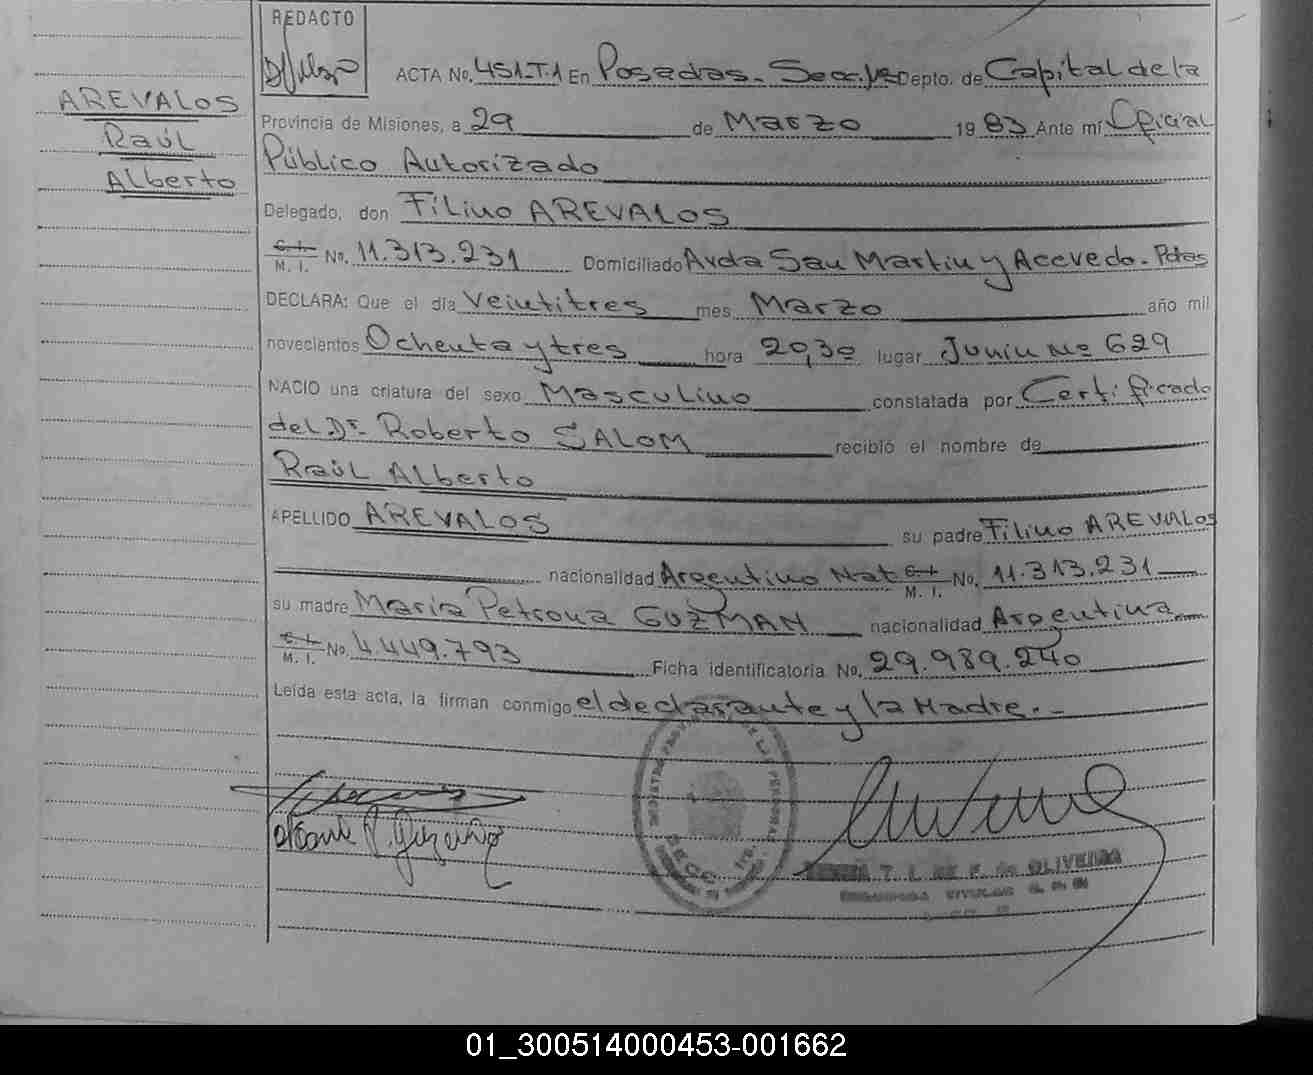 REDACTO
AREVALOS
Raúl
Alberto
ACTA No. 451-T.1 En Posadas - Secc. 1ra Depto. de Capital de la
Provincia de Misiones, a 29 de Marzo 19 83 Ante mí Oficial
Público Autorizado
Delegado, don Filino AREVALOS
C. I. M. I. No. 11.313.231 Domiciliado Avda San Martin y Acevedo. Pdas
DECLARA: Que el día Veintitres mes Marzo año mil
novecientos Ochenta y tres hora 20,30 lugar Junin Nº 629
NACIO una criatura del sexo Masculino constatada por Certificado
del Dr. Roberto SALOM recibió el nombre de
Raúl Alberto
APELLIDO AREVALOS su padre Filino AREVALOS
nacionalidad Argentino Nat C. I. M. I. No. 11.313.231
su madre Maria Petrona GUZMAN nacionalidad Argentina
C. I. M. I. No. 4.449.793 Ficha identificatoria No. 29.989.240
Leída esta acta, la firman conmigo el declarante y la Madre.-
DE OLIVEIRA
01_300514000453-001662